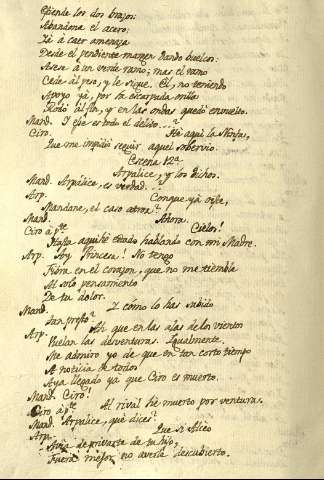 Estiende los dos brazos:
Abandona el acero:
Yá á caer amenaza
Desde el pendiente margen dando buelcos:
Asese á un verde ramo; mas el ramo
Cede al peso, y le sigue. El, no teniendo
Apoyo ya, por la escarpada orilla
Rodó al fin, y en las ondas quedó embuelto.
Mand. Y ese es todo el delito...?
Ciro. He aqui la Ninfa,
Que me impidió seguir aquel sobervio.
Escena 12ª
Arpalice, y los dichos.
Mand. Arpalice, es verdad...
Arp. Conque ya oiste,
Mandane, el caso atroz?
Mand. Ahora.
Ciro á pte Cielos!
Hasta aqui hé estado hablando con mi Madre.
Arp. Soy Princesa! No tengo
Fibra en el corazon, que no me tiemble
Al solo pensamiento
De tu dolor.
Mand. Y cómo lo has sabido
Tan presto?
Arp. Ah que en las alas de los vientos
Vuelan las desventuras. Igualmente
Me admiro yo de que en tan corto tiempo
A noticia de todos
Aya llegado ya que Ciro es muerto.
Mand. Ciro!
Ciro á pte Al rival hé muerto por ventura.
Mand. Arpalice, qué dices?
Arp. Que si Alceo
Avia de privarte de tu hijo,
Fuera mejor no averla descubierto.